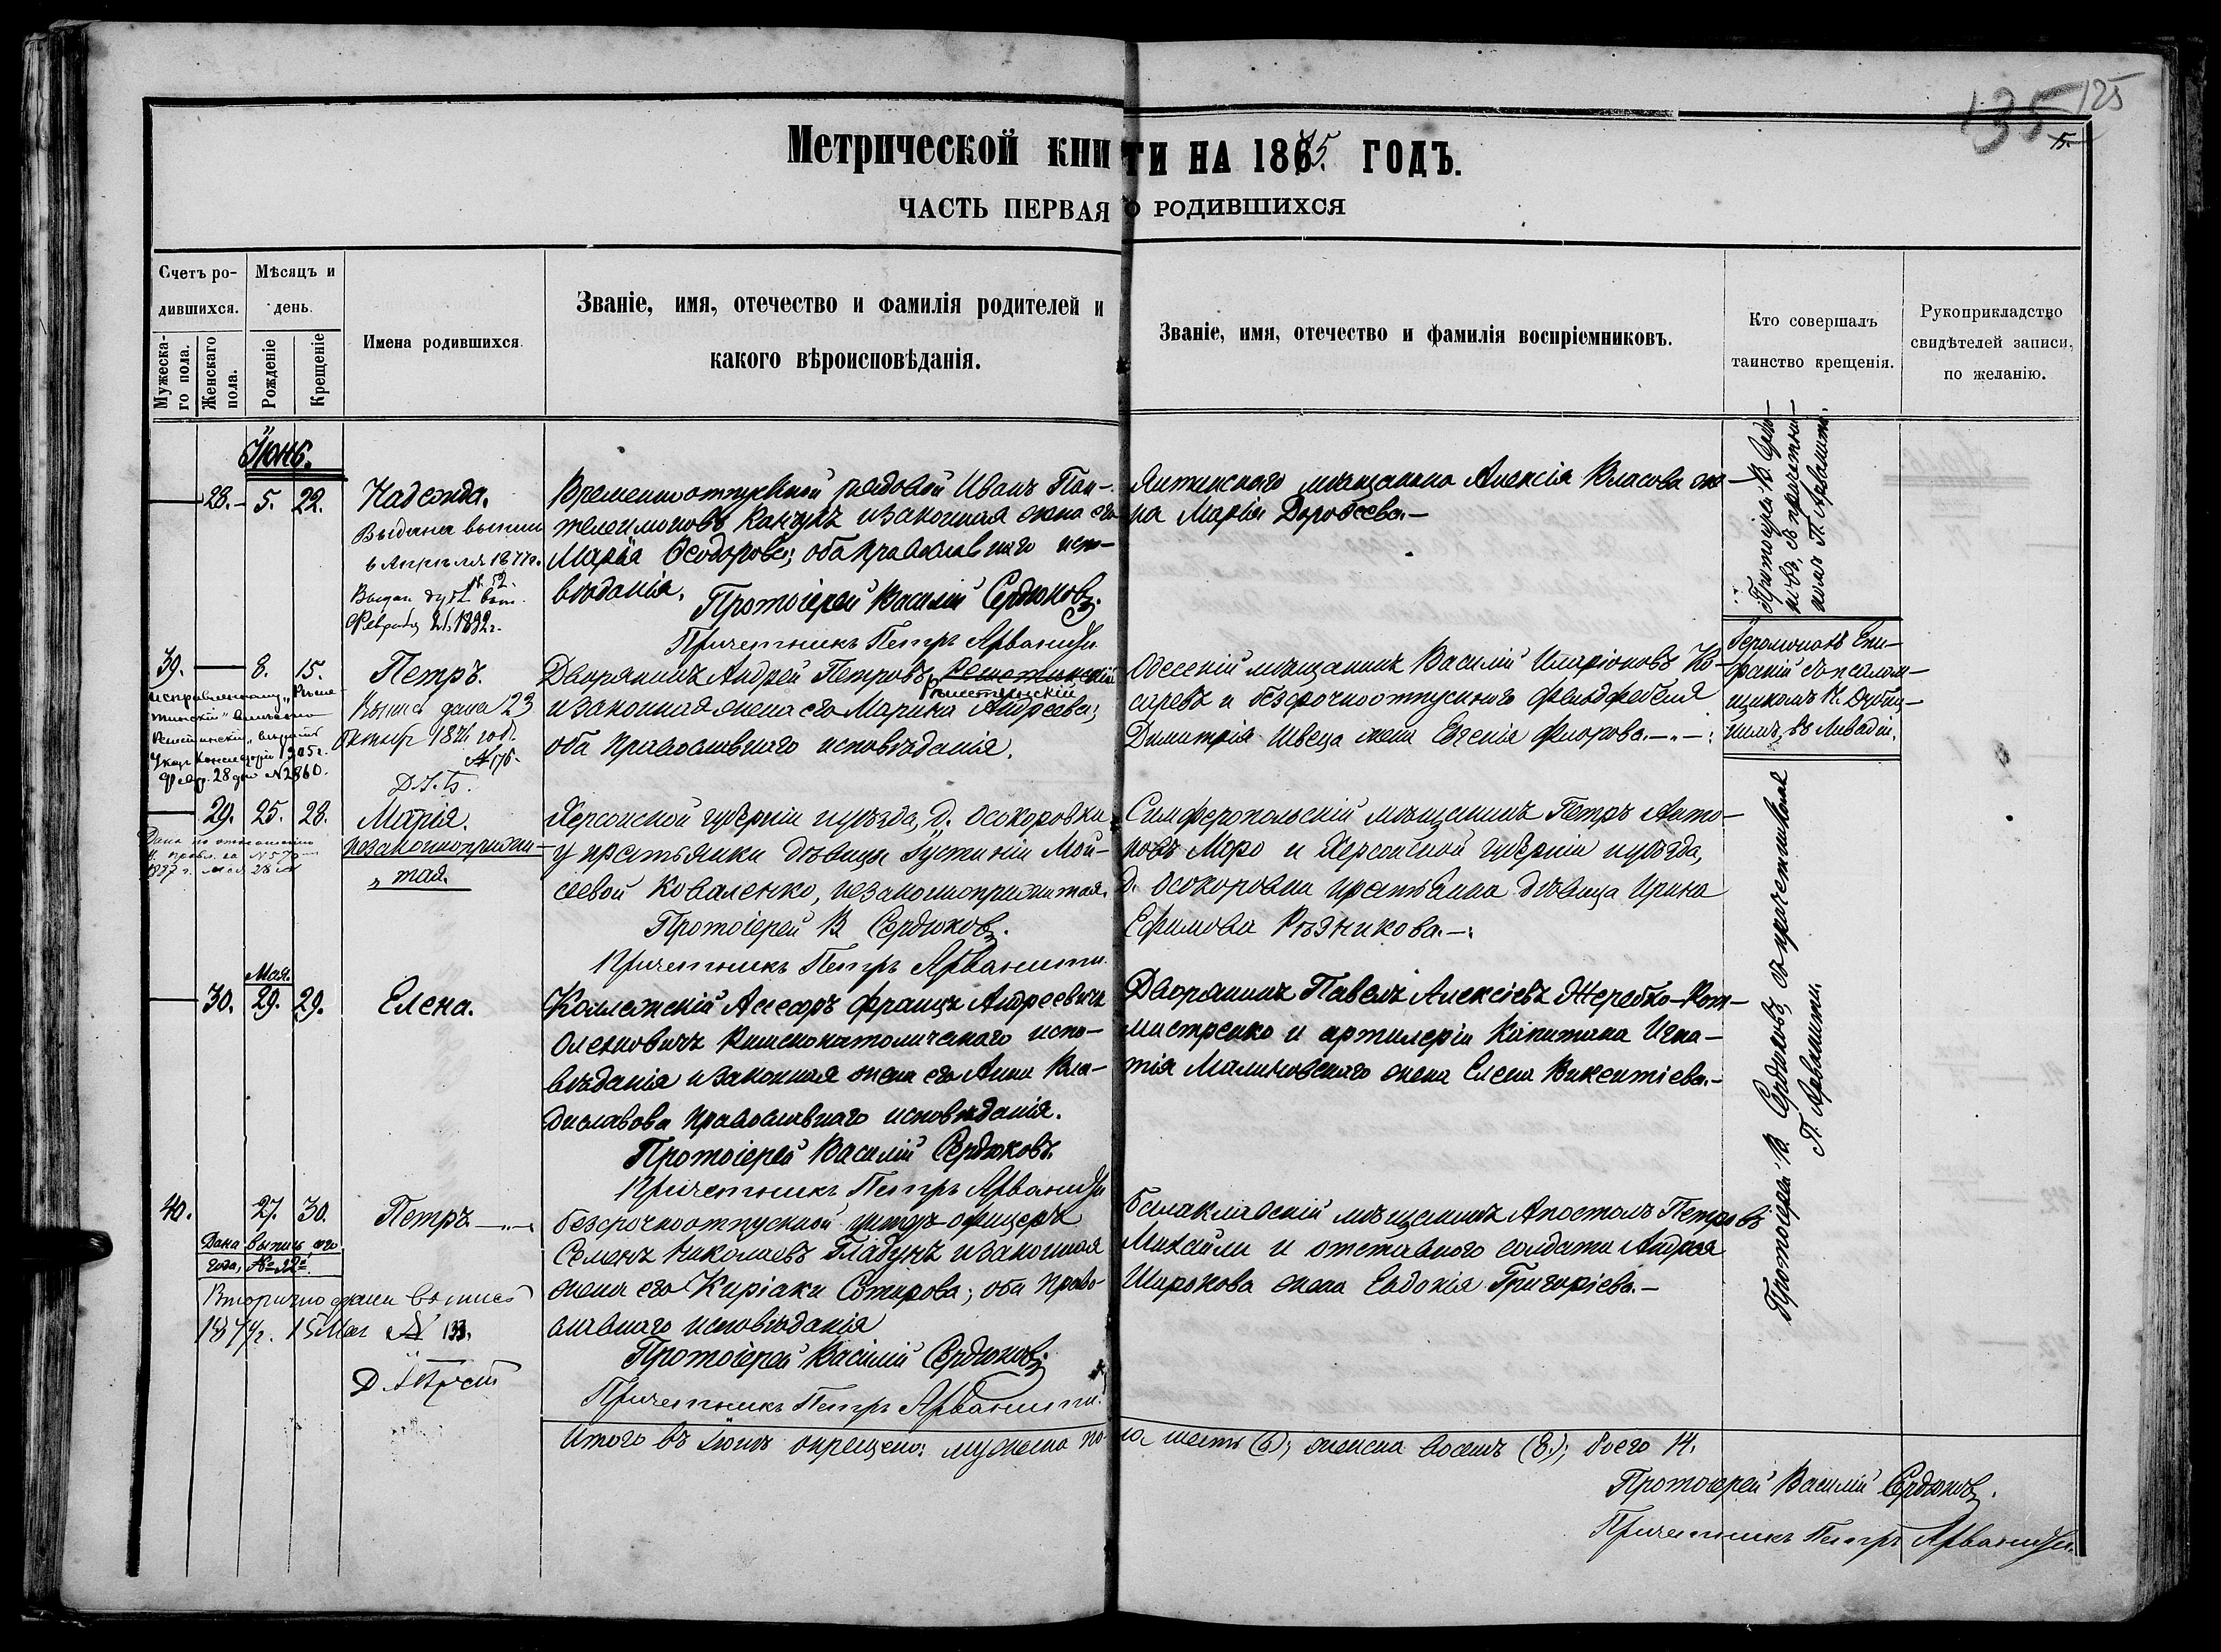 135 125
15.
Метрической книги на 1875. годъ.
ЧАСТЬ ПЕРВАЯ О РОДИВШИХСЯ
Счетъ родившихся.
Мужескаго пола.
Женскаго пола.
Мѣсяцъ и день.
Рожденіе
Крещеніе
Имена родившихся.
Званіе, имя, отечество и фамилія родителей и
какого вѣроисповѣданія.
Званіе, имя, отечество и фамилія воспріемниковъ.
Кто совершалъ
таинство крещенія.
Рукоприкладство
свидѣтелей записи,
по желанію.
Іюнь.
28. 5. 22.
Надежда.
Выдана выпись
6 Апрѣля 1877г.
№ 52.
Февраля 1892г.
Временноотпускной рядовой Иванъ Пан-
телеимоновъ и законная жена его
Марѳа Ѳеодорова; оба православнаго испо-
вѣданія.
Протоіерей Василій Сердюковъ.
Причетникъ Петръ Арванити
Ялтинскаго мѣщанина Алексія Власова же-
на Марѳа Дороѳеева.
Протоіерей В. Сердю-
ковъ, съ причетни-
комъ П. Арванити.
39. 8. 15.
Петръ.
Выпись дана 23
Октябр 1876 год.
№ 176.
Исправленному „Рѣше-
тинскій" вмѣсто
Указ Консисторіи 1905г.
Февр. 28 дня № 2860.
Дворянинъ Андрей Петровъ Решетинскій
Рѣшетинскій
и законная жена его Марина Андреева;
оба православнаго исповѣданія.
Одесскій мѣщанинъ Василій Иларіоновъ Ко-
сыревъ и безсрочноотпускнаго фельдфебеля
Димитрія Швеца жена Евгенія Флорова.
Іеромонахъ Епи-
фаній съ псалом-
щикомъ
въ Ливадіи.
29. 25. 28.
Марія.
незаконноприжи-
тая.
Дана по отношенію
№ 570
1887 г. мая 28
Херсонской губерніи и уѣзда, д. Осокоровки
у крестьянки дѣвицы Іустиніи Мой-
сеевой Коваленко, незаконноприжитая.
Протоіерей В Сердюковъ.
Причетникъ Петръ Арванити
Симферопольскій мѣщанинъ Петръ Анто-
новъ Моро и Херсонской губерніи и уѣзда,
д. Осокоровки крестьянка дѣвица Ирина
Ефимова Рѣзникова.
Мая.
30. 29. 29.
Елена.
Коллежскій Асесоръ Францъ Андреевичъ
Оленковичъ Римскокатолическаго испо-
вѣданія и законная жена его Анна Вла-
диславова православнаго исповѣданія.
Протоіерей Василій Сердюковъ.
Причетникъ Петръ Арванити
Дворянинъ Павелъ Алексіевъ Жеребко-Рот-
мистренко и артилеріи Капитана Игна-
тія Малиновскаго жена Елена Викентіева.
Протоіерей В. Сердюковъ, съ причетникомъ
П. Арванити.
40. 27. 30.
Петръ
Дана выпись, сего
года, № 22.
Вторично дана выпись
1877г. 15 Мая № 133.
Безсрочноотпускной унтеръ-офицеръ
Семенъ Николаевъ Гладунъ и законная
жена его Киріаки Сотирова; оба право-
славнаго исповѣданія
Протоіерей Василій Сердюковъ.
Причетникъ Петръ Арванити.
Балаклавскій мѣщанинъ Апостолъ Петровъ
Михайли и отставнаго солдата Андрея
Широкова жена Евдокія Григоріева.
Итого въ Іюнѣ окрещено: мужеска пола шесть (6); женска восемь (8); всего 14.
Протоіерей Василій Сердюковъ.
Причетникъ Петръ Арванити.